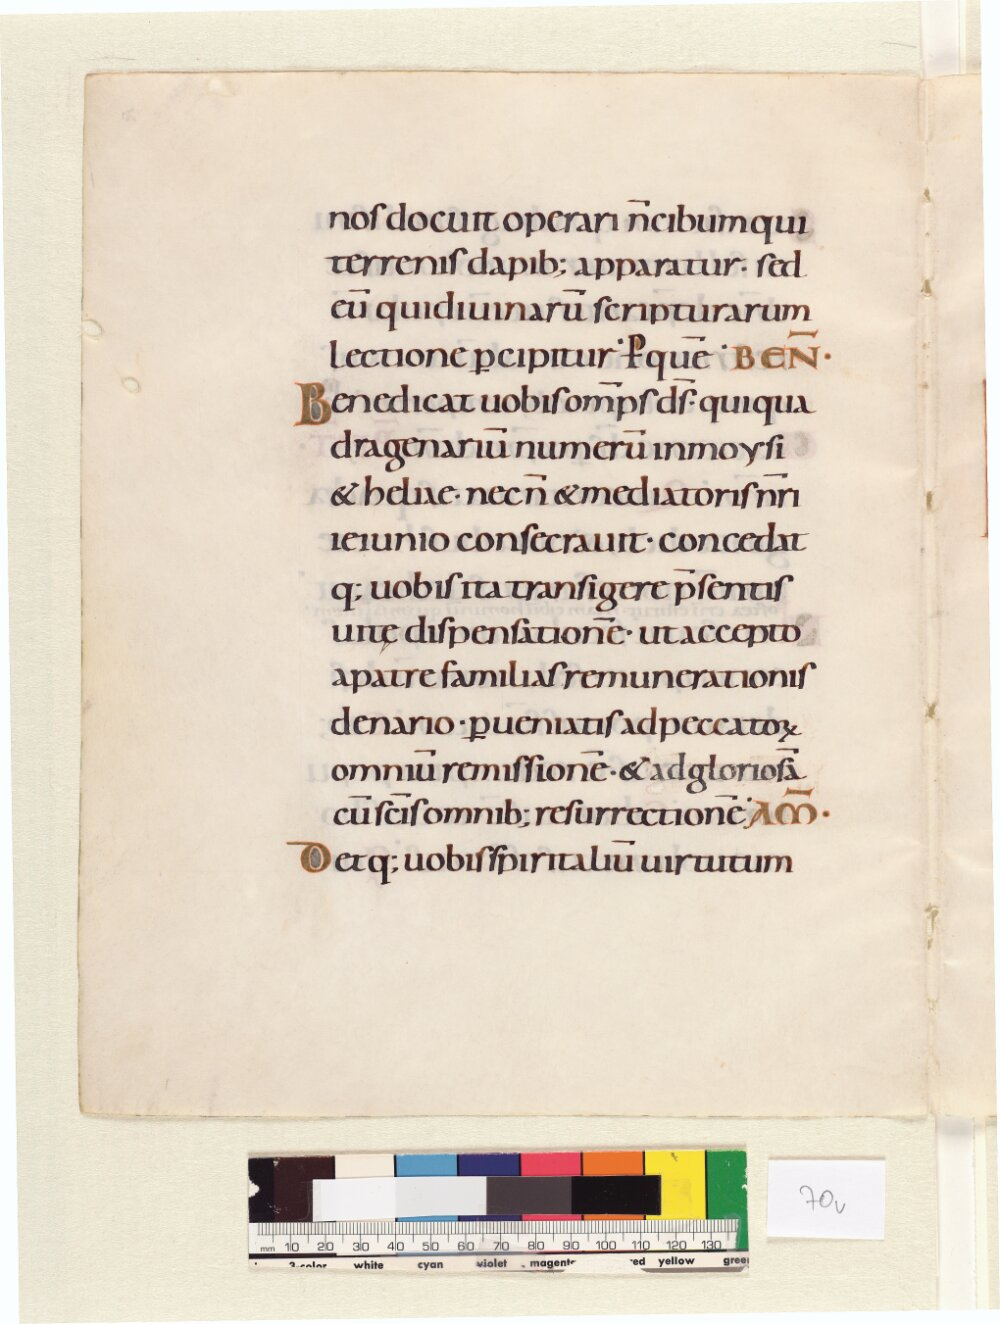 noſ docuit operari n̄ cibum qui
terreniſ dapib; apparatur· ſed
eū qui diuinarū ſcripturarum
lectione ꝑcipitur· P̄ quē· BEN̄·
Benedicat uobiſ om̄pſ dſ̄· qui qua
dragenariū numerū in moysi
& heliae· nec n̄ & mediatoriſ nr̄i
ieiunio conſecrauit· concedat
q; uobiſ ita tranſigere p̄ſentiſ
uitę diſpenſationē· ut accepto
a patre familiaſ remunerationiſ
denario· ꝑueniatiſ ad peccatoꝝ
omniū remiſſionē· & ad glorioſā
cū ſcīſ omnib; reſurrectionē· AM̄·
Det q; uobiſ ſpiritaliū uirtutum
70v
mm 10 20 30 40 50 60 70 80 90 100 110 120 130
3-color white cyan violet magenta red yellow green